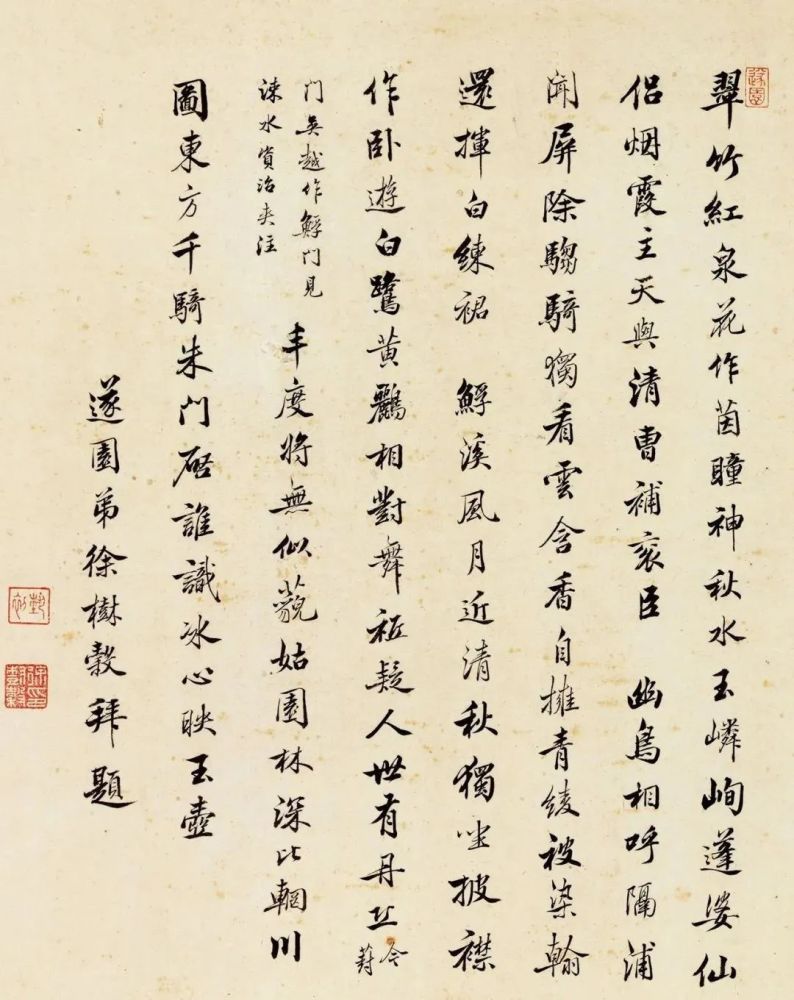 遂園
翠竹紅泉花作茵瞳神秋水玉嶙峋蓬婆仙
侣烟霞主天與清曹補衮臣 幽鳥相呼隔浦
聞屏除騶騎獨看雲含香自擁青綾被染翰
還揮白練裙 䱐溪風月近清秋獨坐披襟
作卧遊白鷺黄鸝相對舞祗疑人世有丹丘 今葑
門吴越作䱐門見
涑水資治夾注
丰度將無似藐姑園林深比輞川
圖東方千騎朱門啓誰識冰心映玉壺
遂園弟徐樹穀拜題
藝初